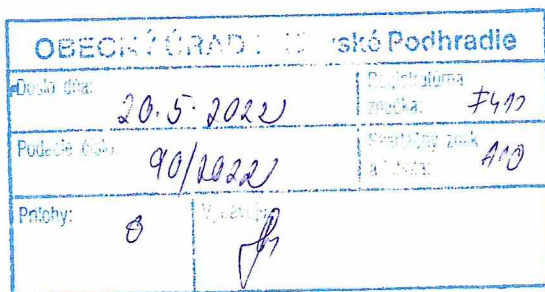 OBECNÝ ÚRAD ské Podhradie
Došlo dňa: 20.5.2022
Registratúrna značka:
Podacie číslo: 90/2022
Skartačný znak a lehota: A10
Prílohy: 0
Vybavuje: